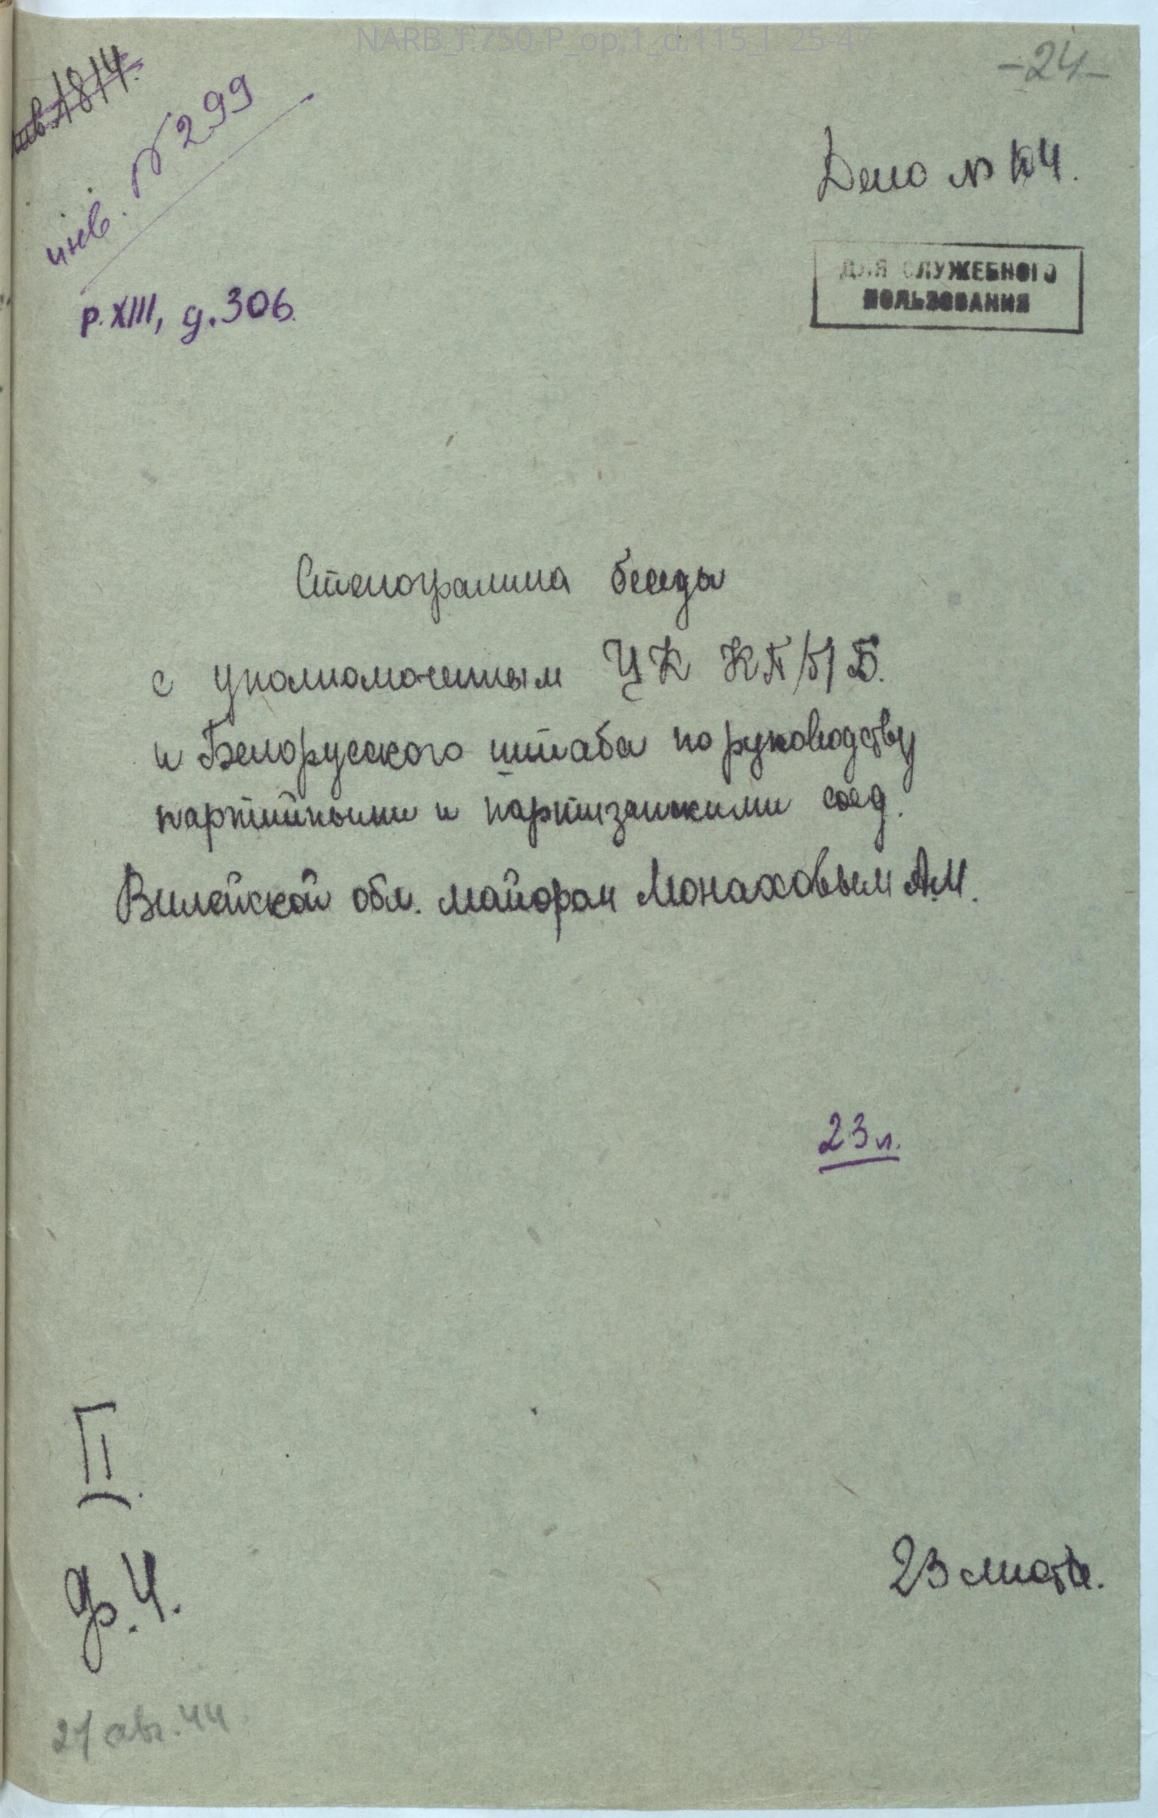 NARB_f.750 P_op.1_d.115_l 25-47
-24-
инв. 1814.
инв. №299
Дело № 104.
ДЛЯ СЛУЖЕБНОГО
ПОЛЬЗОВАНИЯ
р. XIII, д. 306.
Стенограмма беседы
с уполномоченным ЦК КП/б/Б.
и Белорусского штаба по руководству
партийными и партизанскими соед.
Вилейской обл. майором Монаховым А.М.
23 л.
II.
ф. 4.
23 листа.
21 авг. 44.